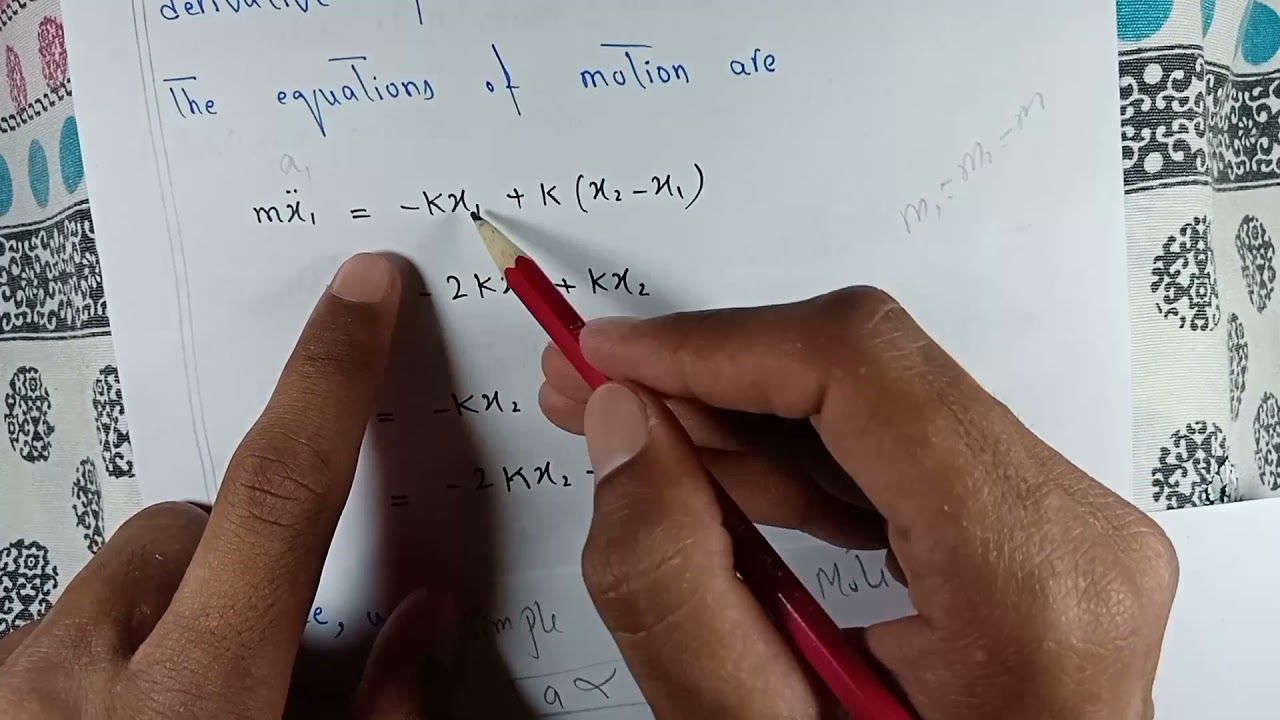 derivative
The equations of motion are
a₁
mẍ₁ = -Kx₁ + K (x₂ - x₁)
m₁ = m₂ = m
- 2K + Kx₂
= -Kx₂
= -2Kx₂ -
simple
a ∝